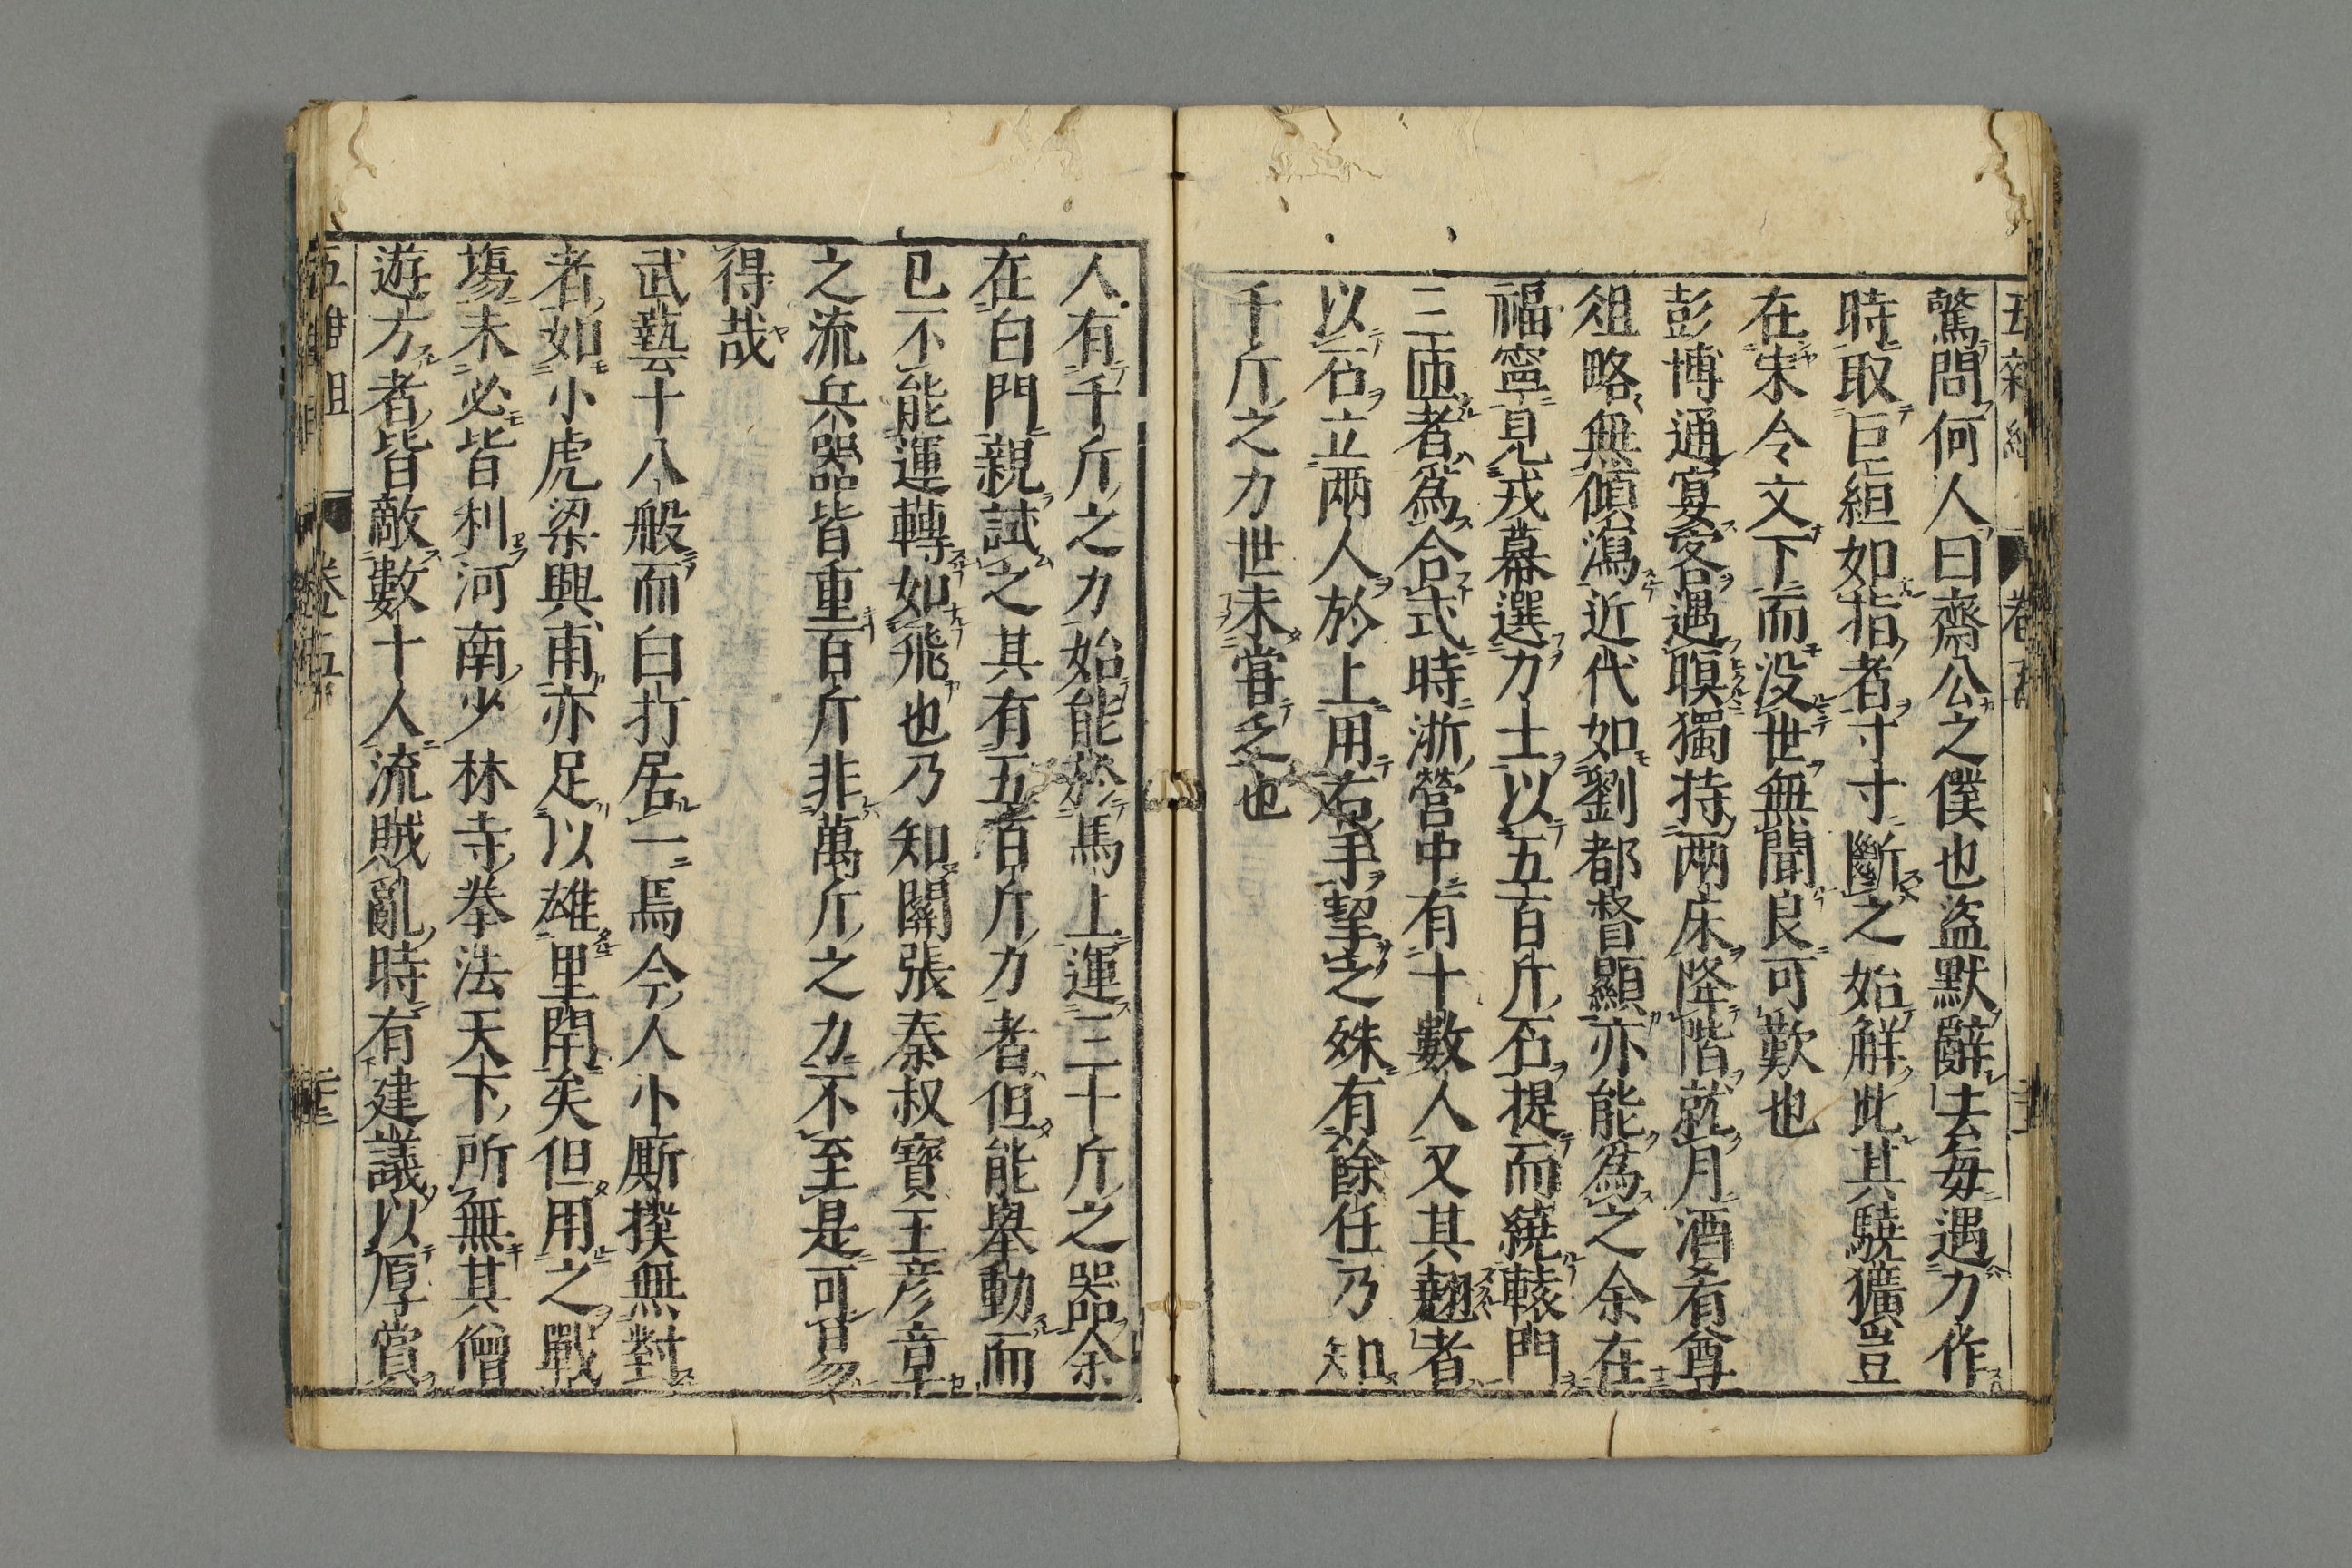 驚問何人曰齋公之僕也盗默辭去毎遇力作
時取巨絙如指者寸寸斷之始解此其驍獷豈
在宋令文下而没世無聞良可歎也
彭博通宴客遇暝獨持兩床降階就月酒肴尊
俎略無傾瀉近代如劉都督顯亦能爲之余在
福寧見戎幕選力士以五百斤石提而繞轅門
三匝者爲合式時浙營中有十數人又其趐者
以石立兩人於上用右手挈之殊有餘任乃知
千斤之力世未嘗乏也
人有千斤之力始能於馬上運三十斤之器余
在白門親試之其有五百斤力者但能舉動而
已不能運轉如飛也乃知關張秦叔寶王彦章
之流兵器皆重百斤非萬斤之力不至是可易
得哉
武藝十八般而白打居一焉今人小厮撲無對
者如小虎梁興甫亦足以雄里閈矣但用之戰
塲未必皆利河南少林寺拳法天下所無其僧
遊方者皆敵數十人流賊亂時有建議以厚賞
卷五